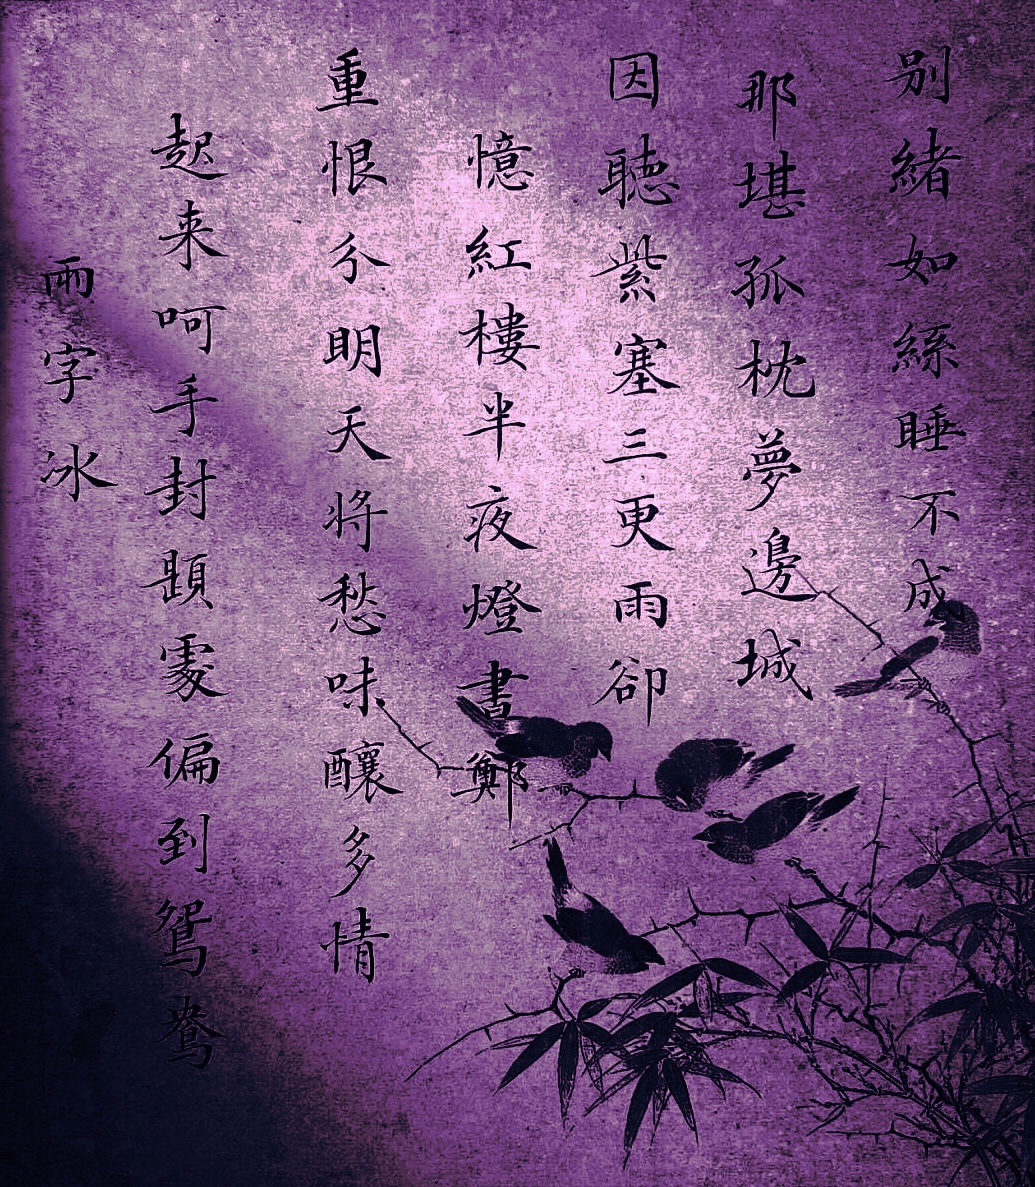 别緒如絲睡不成
那堪孤枕夢邊城
因聴紫塞三更雨卻
憶紅樓半夜燈書鄭
重恨分明天将愁味釀多情
起来呵手封題處偏到鴛鴦
兩字冰